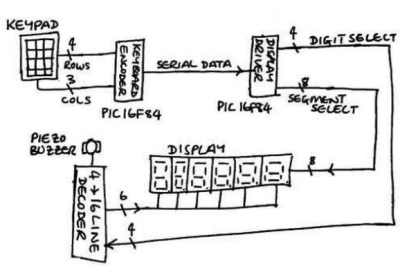 KEYPAD
4
ROWS
3
COLS
KEYBOARD
ENCODER
PIC16F84
SERIAL DATA
DISPLAY
DRIVER
PIC16F84
4
DIGIT SELECT
8
SEGMENT
SELECT
PIEZO
BUZZER
DISPLAY
8
4→16 LINE
DECODER
6
4